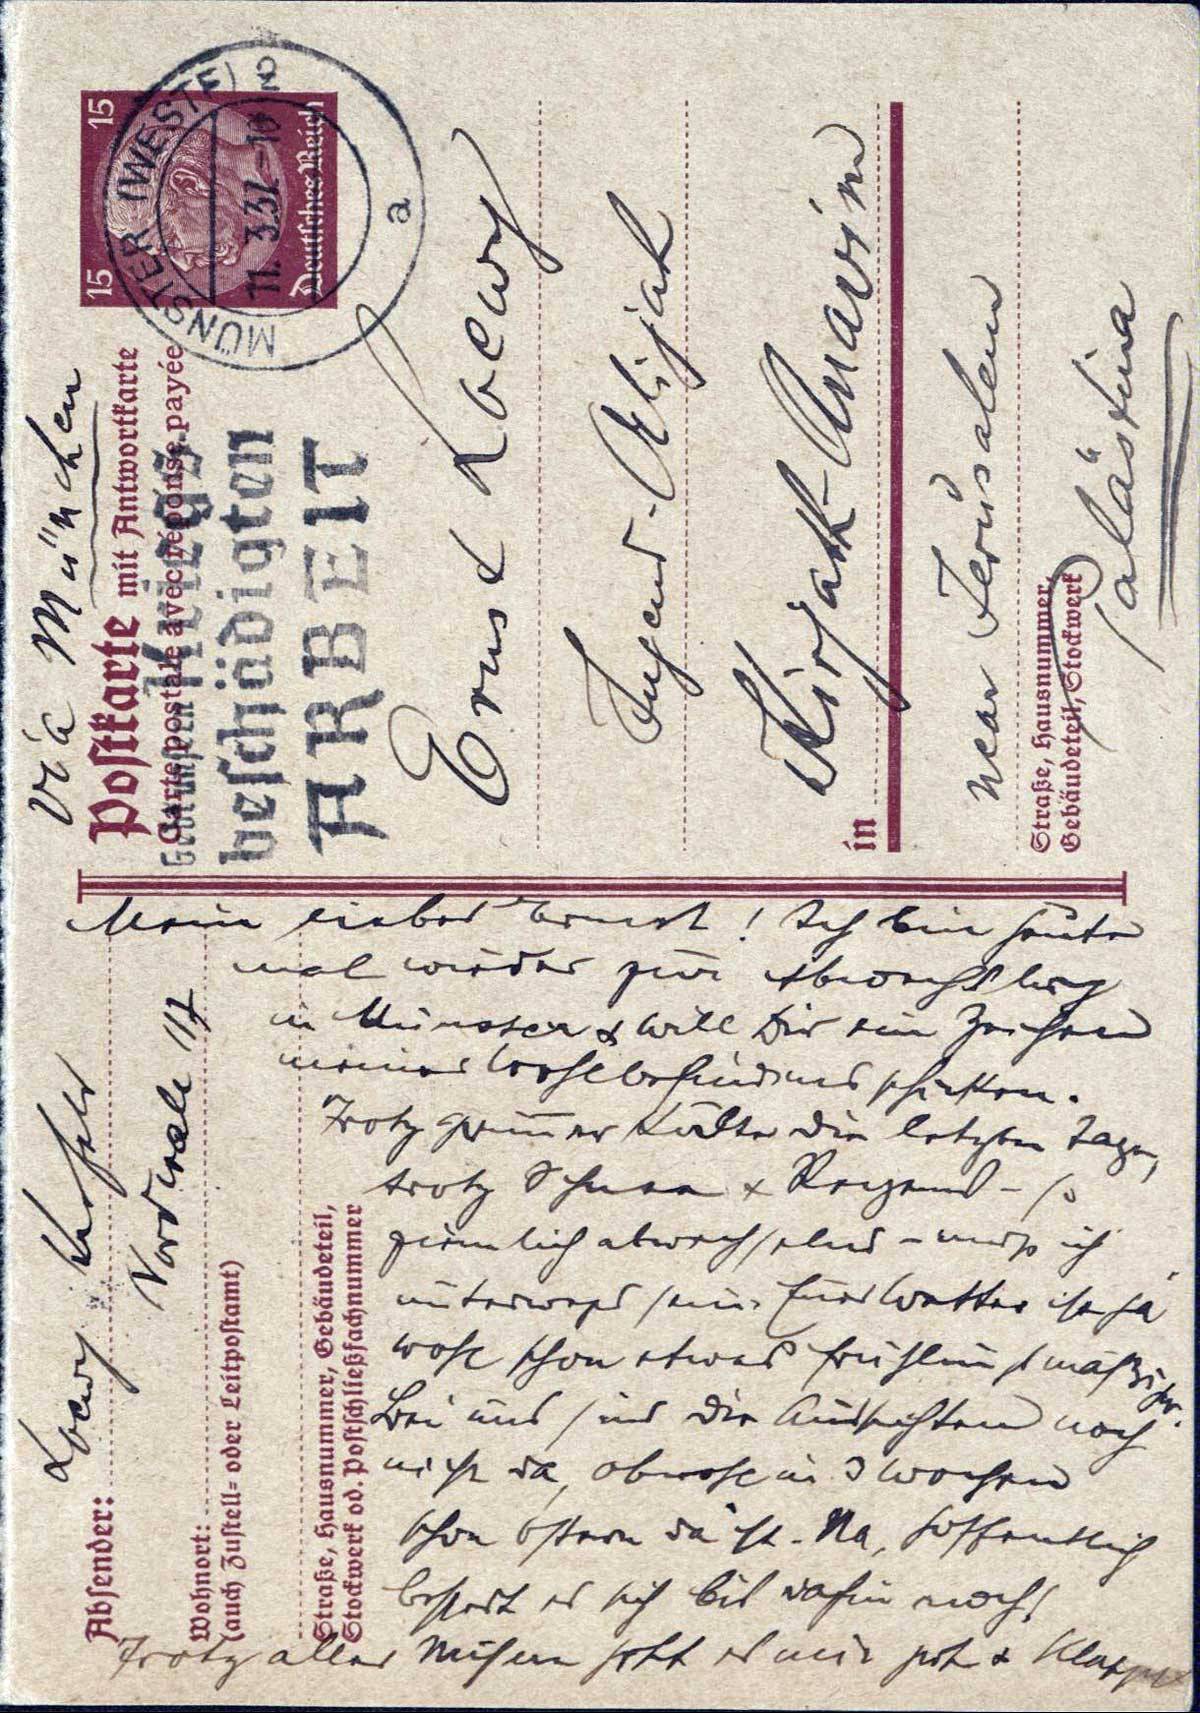 via München
Postkarte mit Antwortkarte
Carte postale avec réponse payée
15 15
Deutsches Reich
MÜNSTER (WESTF) 2
11.3.37.-10
a
Kriegs
beschädigten
ARBEIT
Ernst Loewy
Jugend-Alijah
Kirjath-Anavim
in
near Jerusalem
Straße, Hausnummer,
Gebäudeteil, Stockwerk
Palästina
Absender: Loewy Krefeld
Wohnort: Nordwall 117
(auch Zustell- oder Leitpostamt)
Straße, Hausnummer, Gebäudeteil,
Stockwerk od. Postschließfachnummer
Mein lieber Ernst! Ich bin heute
mal wieder zur Abwechslung
in Münster & will Dir ein Zeichen
meines Wohlbefindens schicken.
Trotz grimmer Kälte die letzten Tage,
trotz Schnee & Regens - so
ziemlich abwechselnd - muß ich
unterwegs sein. Euer Wetter ist ja
wohl schon etwas frühlingsmäßiger.
Bei uns sind die Aussichten noch
nicht da, obwohl in 3 Wochen
schon Ostern da ist. Na, hoffentlich
bessert es sich bis dahin noch!
Trotz aller Mühen geht es mir gut &